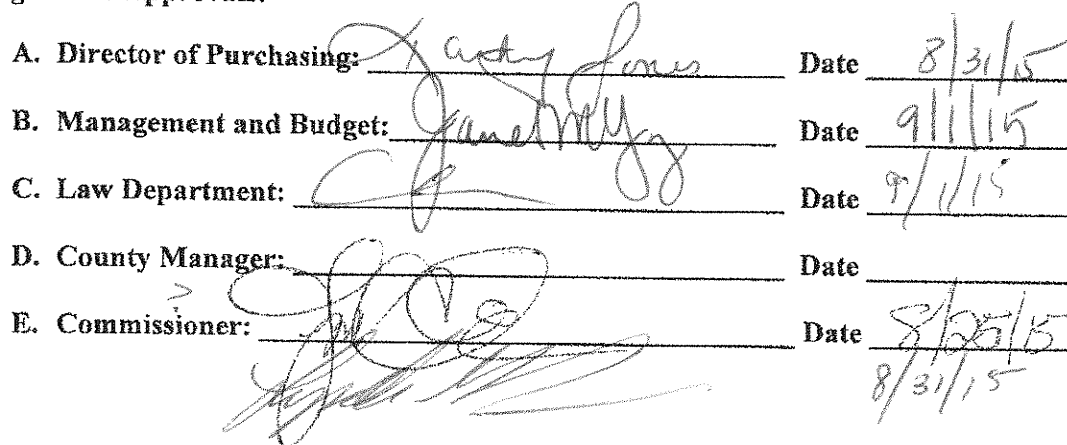 A. Director of Purchasing: Jones Date 8/31/15
B. Management and Budget: Janet Date 9/1/15
C. Law Department: Date 9/1/15
D. County Manager: Date
E. Commissioner: Date 8/25/15
8/31/15